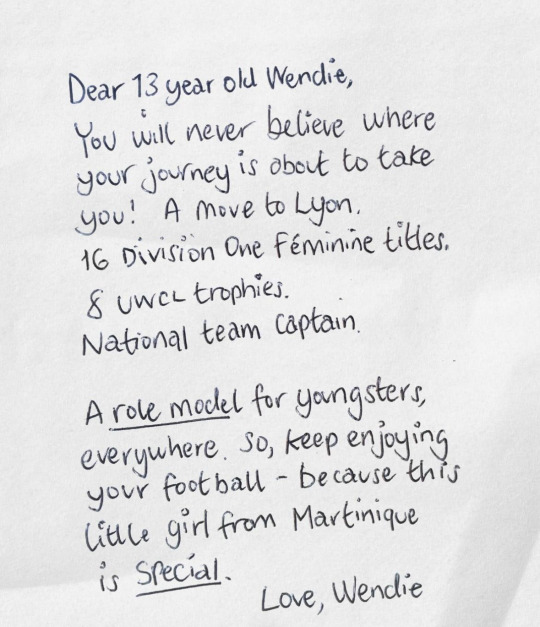 Dear 13 year old Wendie,
You will never believe where
your journey is about to take
you! A move to Lyon.
16 Division One Féminine titles.
8 UWCL trophies.
National team captain.
A role model for youngsters,
everywhere. So, keep enjoying
your football - because this
little girl from Martinique
is Special.
Love, Wendie